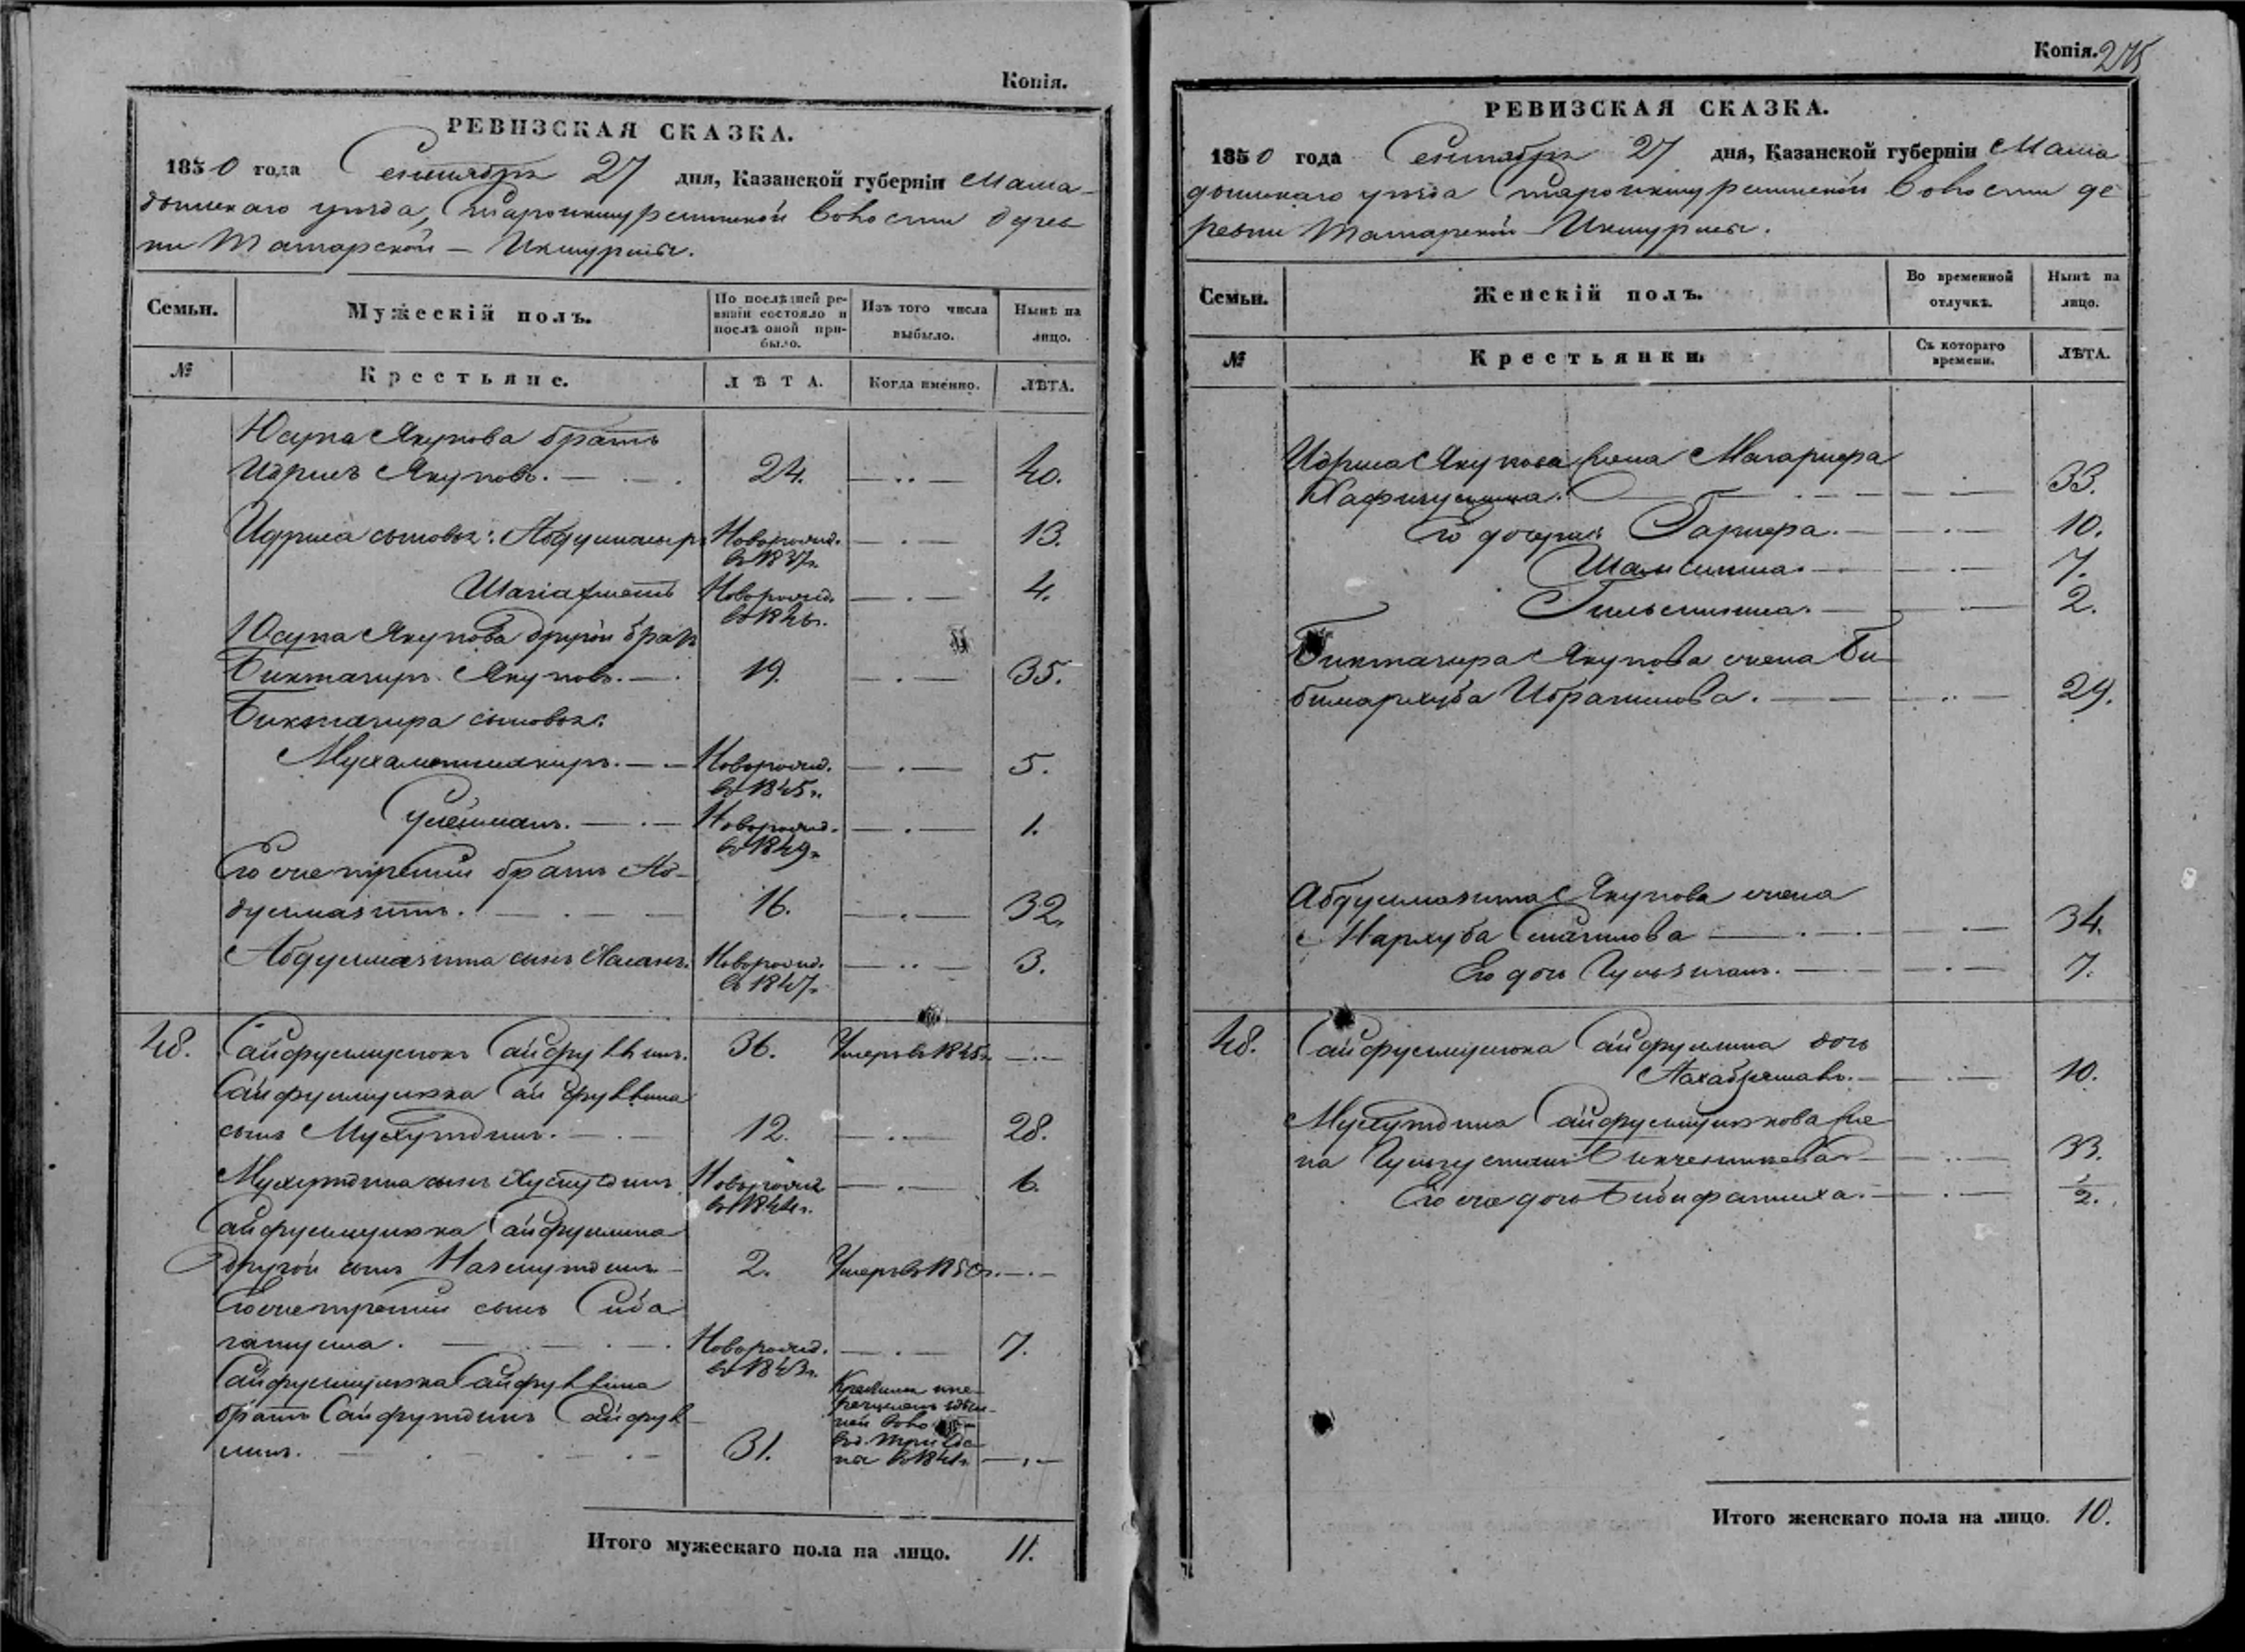 Копія.
РЕВИЗСКАЯ СКАЗКА.
1850 года Сентября 27 дня, Казанской губерніи Мама-
дышскаго уѣзда, Староикшурминской волости дерев-
ни Татарской — Икшурмы.
Семьи. Мужескій полъ. По послѣдней ре-
визіи состояло и
послѣ оной при-
было. Изъ того числа
выбыло. Нынѣ на
лицо.
№ Крестьяне. ЛѢТА. Когда именно. ЛѢТА.
Юсупа Якупова братъ
Идрисъ Якуповъ. 24. 40.
Идриса сыновья: Новорожд. 13.
въ 1837г.
Шагіахметъ Новорожд. 4.
въ 1846г.
Юсупа Якупова другой братъ
Биктагиръ Якуповъ. 19. 35.
Биктагира сыновья:
Мухаметшакиръ. Новорожд. 5.
въ 1845г.
Сулейманъ. Новорожд. 1.
въ 1849г.
Его же третій братъ Аб-
дулмазитъ. 16. 32.
Абдулмазита сынъ Хасанъ. Новорожд. 3.
въ 1847г.
48. Сайфулмулюкъ Сайфуллинъ. 36. Умеръ въ 1845г.
Сайфулмулюка Сайфуллина
сынъ Мухутдинъ. 12. 28.
Мухутдина сынъ Хуснутдинъ Новорожд. 6.
въ 1844г.
Сайфулмулюка Сайфуллина
другой сынъ Назмутдинъ 2. Умеръ въ 1850г.
Его же третій сынъ Сиба-
гатулла. Новорожд. 7.
въ 1843г.
Сайфулмулюка Сайфуллина
братъ Сайфутдинъ Сайфул-
линъ. 31. въ 1841г.
Итого мужескаго пола на лицо. 11.
Копія. 275
РЕВИЗСКАЯ СКАЗКА.
1850 года Сентября 27 дня, Казанской губерніи Мама-
дышскаго уѣзда Староикшурминской волости де-
ревни Татарской Икшурмы.
Семьи. Женскій полъ. Во временной
отлучкѣ. Нынѣ на
лицо.
№ Крестьянки. Съ котораго
времени. ЛѢТА.
Идриса Якупова жена Магарифа
33.
Его дочери: Гарифа. 10.
Шамсиниса. 7.
Гильсиниса. 2.
Биктагира Якупова жена Би-
бимархуба Ибрагимова. 29.
Абдулмазита Якупова жена
Мархуба Смагилова 34.
Его дочь 7.
48. Сайфулмулюка Сайфуллина дочь
10.
Мухутдина Сайфулмулюкова же-
на 33.
Его же дочь Бибифатиха. 1/2.
Итого женскаго пола на лицо. 10.